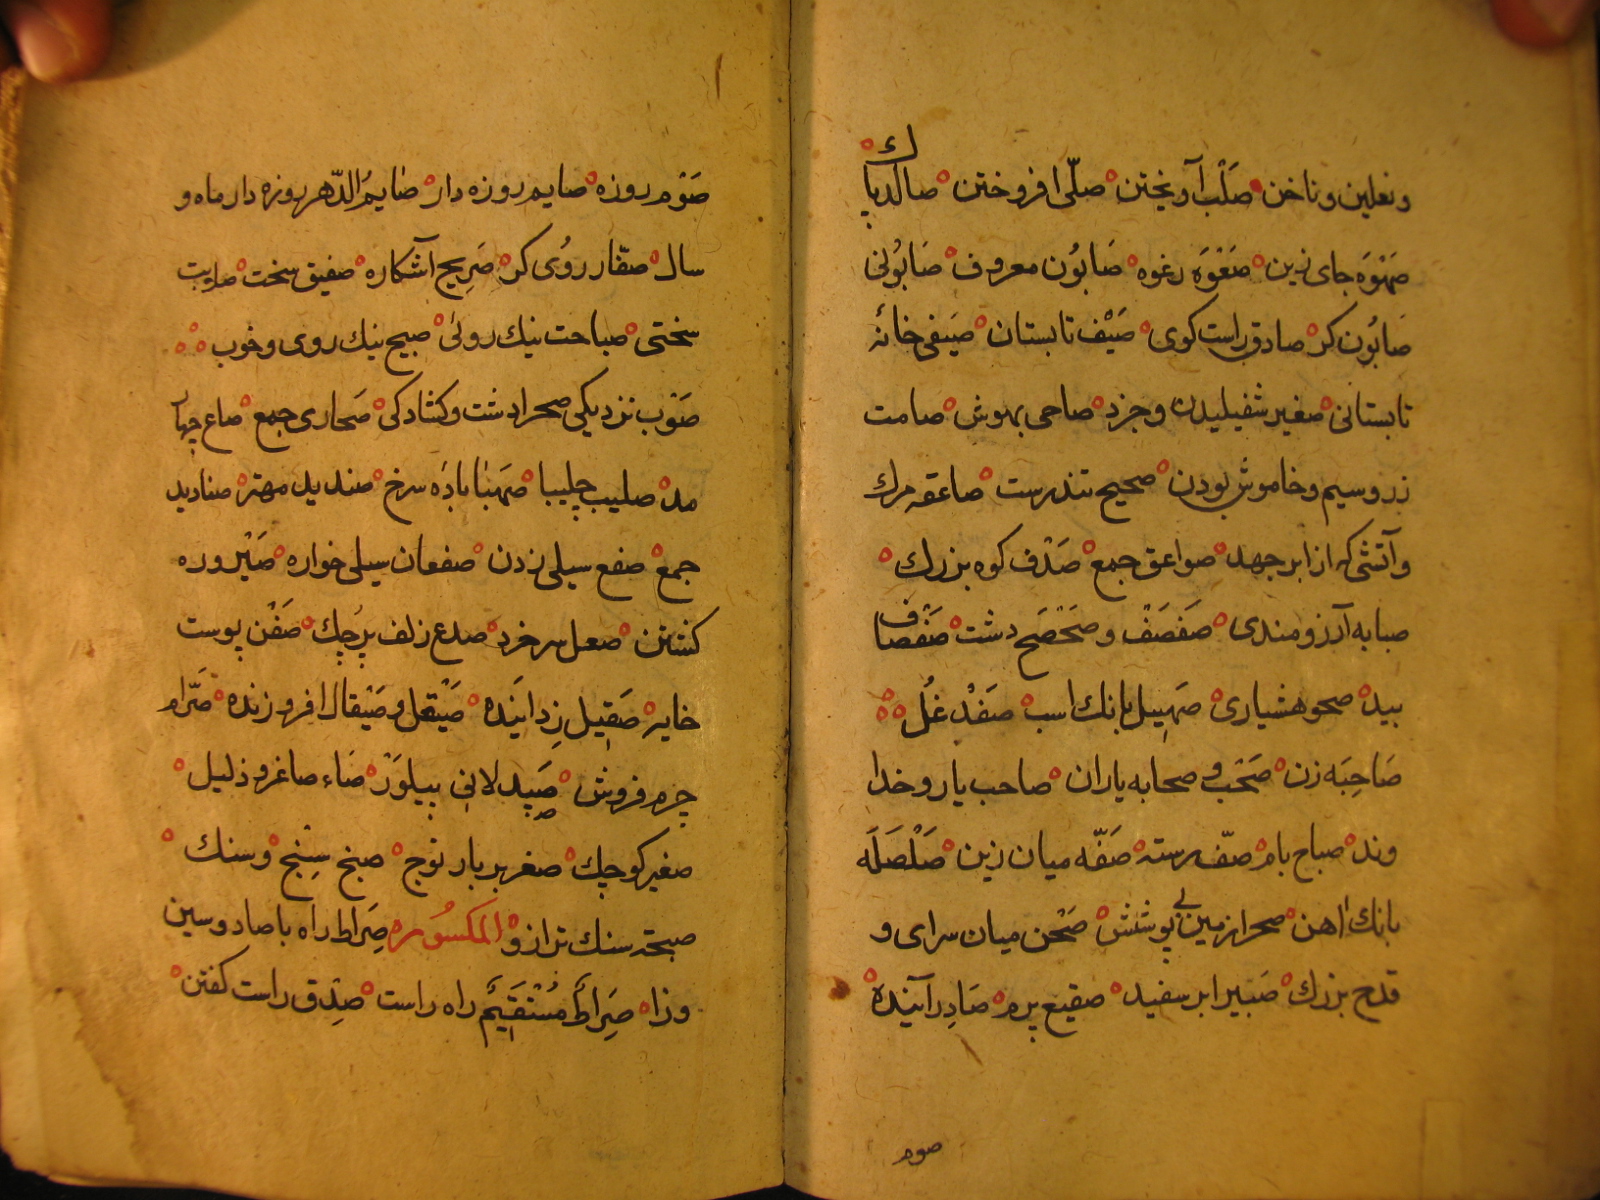 ونعلین وناخن صَلْب آویختن صلّی افروختن صالک دیبا
صَهْوَه جای زین صَغْوَه رغوه صَابُون معروف صَابُونی
صَابُون کر صادق راست کوی صَیْف تابستان صَیفی خانهٔ
تابستانی صفیر شفیلیدن وجزد صاحی بهوش صامت
زر وسیم وخاموش بودن صحیح تندرست صاعقه مرك
وآتشی که از ابر جهد صواعق جمع صَدَف کوه بزرك
صبابه آرزومندی صَفصَفْ و صَحْصَح دشت صَفْصَاف
بید صحو هشیاری صَهِیل بانك اسب صَفْد غُل
صَاحِبَه زن صَحْب و صحابه یاران صاحب یار وخدا
وند صباح بام صفّ رسته صَفّه میان زین صَلْصَلَه
بانك اهن صحرا زمین بی پوشش صَحْن میان سرای و
قدح بزرك صَبیر ابر سفید صقیع پرم صَادِر آینده
صوم
صَوْم روزه صایم روزه دار صَایمُ الدّهر روزه دار ماه و
سال صفّار روُی کر صَرِیح آشکاره صفیق سخت صلابت
سختی صباحت نیك روئی صبیح نیك روی وخوب
صَوْب نزدیکی صحرا دشت وکشادکی صَحاری جمع صاع چهار
مد صلیب چلیپا صَهبَا بادهٔ سرخ صندید مهتر صنادید
جمع صفع سیلی زدن صفعان سیلی خواره صَیْرورَه
کشتن صعل سر خرد صدغ زلف پرچك صَفَن پوست
خایه صَقِیل زداینده صَیْقل و صَیْقال افروزنده صَرّام
چرم فروش صَیدلانی پیلوَرْ صَاء صاغر وذلیل
صغیر کوچك صقر باربر توج صبخ سِنج وسنك
صبحه سنك ترازو المکسُوره صِراط راه با صاد وسین
وزا صِرَاطٌ مُسْتَقِیمٌ راه راست صِدْق راست کفتن